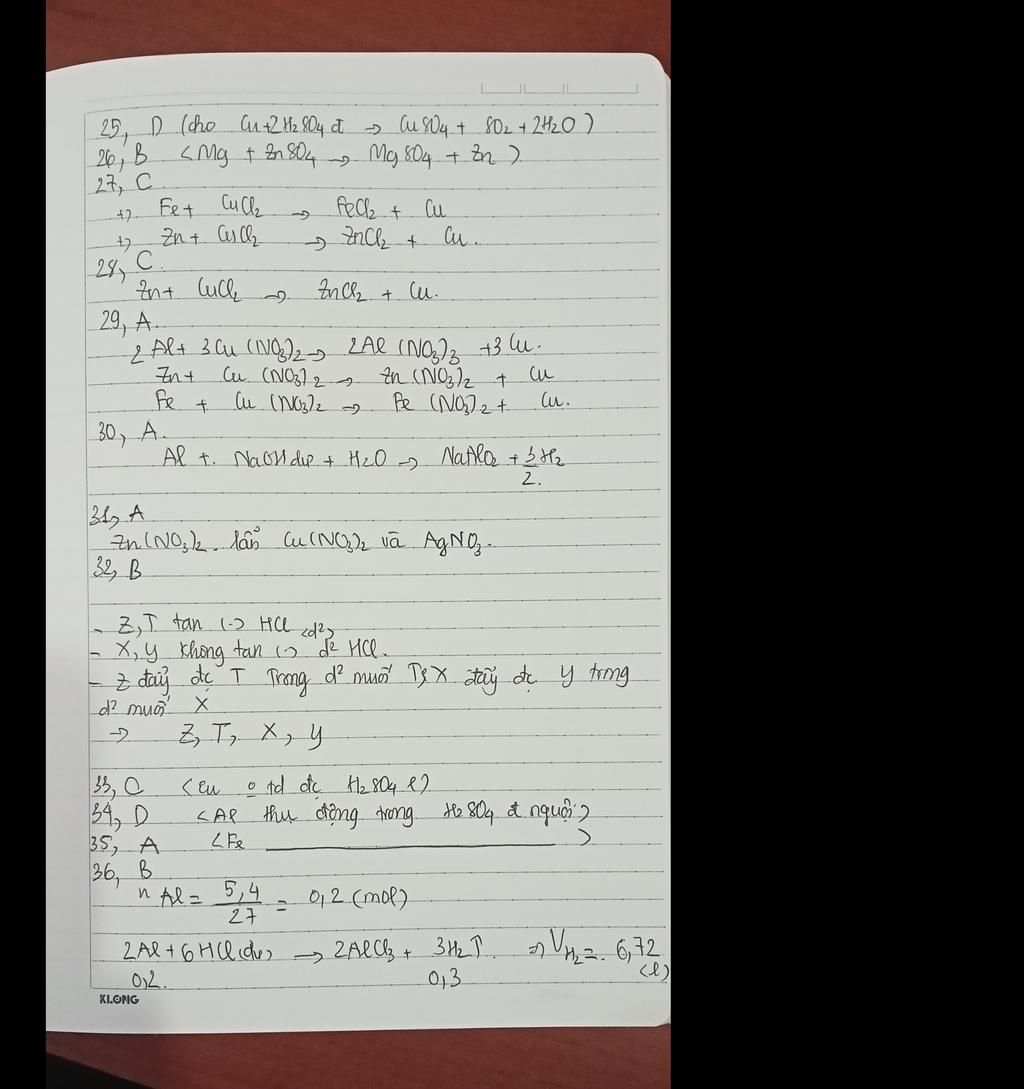 25, D (cho Cu+2H2SO4 đ → CuSO4 + SO2 + 2H2O)
26, B <Mg + ZnSO4 → MgSO4 + Zn>
27, C
+, Fe + CuCl2 → FeCl2 + Cu
+, Zn + CuCl2 → ZnCl2 + Cu.
28, C.
Zn + CuCl2 → ZnCl2 + Cu.
29, A.
2Al + 3Cu(NO3)2 → 2Al(NO3)3 + 3Cu.
Zn + Cu(NO3)2 → Zn(NO3)2 + Cu
Fe + Cu(NO3)2 → Fe(NO3)2 + Cu.
30, A.
Al + NaOH dư + H2O → NaAlO2 + 3/2 H2
31, A
Zn(NO3)2 lẫn Cu(NO3)2 và AgNO3.
32, B
- Z, T tan (-) HCl <d²>
- X, Y không tan (-) d² HCl.
- Z đẩy đc T Trong d² muối T; X đẩy đc Y trong
d² muối X
→ Z, T, X, Y
33, C <Cu o td đc H2SO4 l>
34, D <Al thụ động trong H2SO4 đ nguội>
35, A <Fe ———>
36, B
n Al = 5,4/27 = 0,2 (mol)
2Al + 6HCl(dư) → 2AlCl3 + 3H2↑. ⇒ VH2 = 6,72 (l)
0,2. 0,3
KLONG